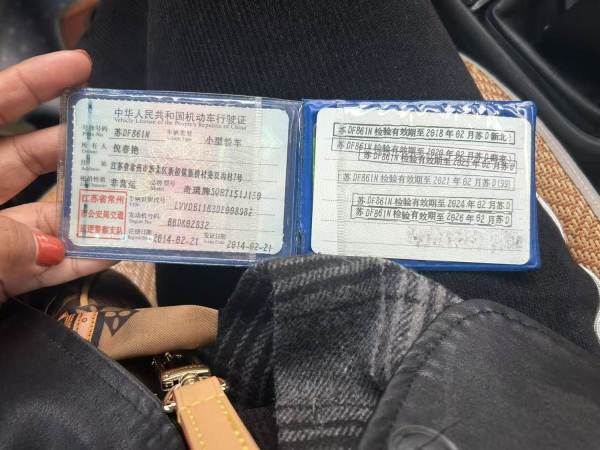 中华人民共和国机动车行驶证
Vehicle License of the People's Republic of China
号牌号码 苏DF861N 车辆类型 小型轿车
Plate No. Vehicle Type
所有人 倪春艳
Owner
住址 江苏省常州市
Address
使用性质 非营运 品牌型号 奇瑞牌SQR7151J150
江苏省常州
市公安局交通
巡逻警察支队
车辆识别代号
VIN
发动机号码
Engine No.
注册日期 2014-02-21 发证日期 2014-02-21
Register Date Issue Date
苏DF861N 检验有效期至2018年02月苏D新北
苏DF861N 检验有效期至2020年02月
苏DF861N 检验有效期至2021年02月苏D(99)
苏DF861N 检验有效期至2024年02月苏D
苏DF861N 检验有效期至2026年02月苏D